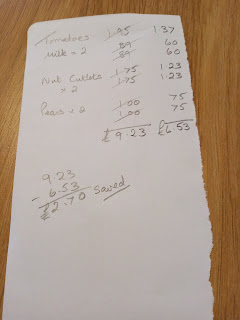 Tomatoes 1.95 1.37
Milk × 2 89 60
89 60
Nut Cutlets 1.75 1.23
× 2 1.75 1.23
Pears × 2 1.00 75
1.00 75
£9.23 £6.53
9.23
- 6.53
£2.70 Saved